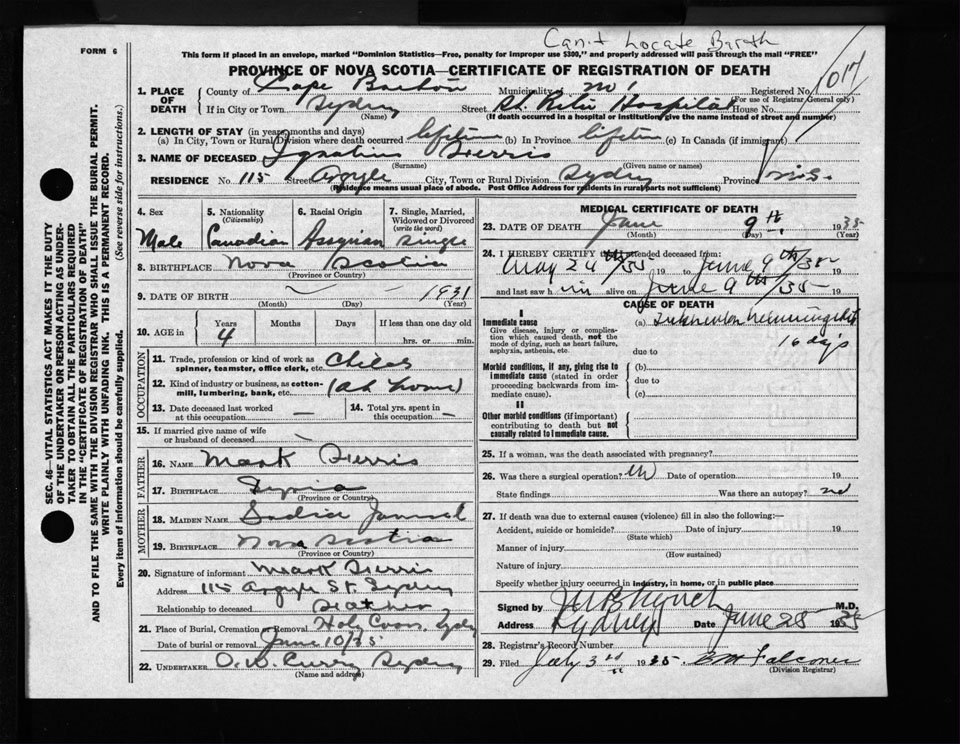 Can't Locate Birth
FORM 6
This form if placed in an envelope, marked "Dominion Statistics—Free, penalty for improper use $300," and properly addressed will pass through the mail "FREE"
PROVINCE OF NOVA SCOTIA—CERTIFICATE OF REGISTRATION OF DEATH
1. PLACE OF DEATH County of Cape Breton Municipality No. Registered No.
(For use of Registrar General only)
If in City or Town Sydney Street St. Rita Hospital House No.
(Name) (If death occurred in a hospital or institution, give the name instead of street and number)
2. LENGTH OF STAY (in years, months and days)
(a) In City, Town or Rural Division where death occurred lifetime (b) In Province lifetime (c) In Canada (if immigrant)
3. NAME OF DECEASED Ignatius Ferris
(Surname) (Given name or names)
RESIDENCE No. 115 Street Argyle City, Town or Rural Division Sydney Province N.S.
(Residence means usual place of abode. Post Office Address for residents in rural parts not sufficient)
4. Sex Male
5. Nationality (Citizenship) Canadian
6. Racial Origin Assyrian
7. Single, Married, Widowed or Divorced (write the word) Single
8. BIRTHPLACE Nova Scotia
(Province or Country)
9. DATE OF BIRTH — — 1931
(Month) (Day) (Year)
10. AGE in Years Months Days If less than one day old
4 hrs. or min.
OCCUPATION
11. Trade, profession or kind of work as spinner, teamster, office clerk, etc. Child
12. Kind of industry or business, as cotton-mill, lumbering, bank, etc. (at home)
13. Date deceased last worked at this occupation —
14. Total yrs. spent in this occupation —
15. If married give name of wife or husband of deceased —
FATHER
16. NAME Mark Ferris
17. BIRTHPLACE Syria
(Province or Country)
MOTHER
18. MAIDEN NAME Sadie
19. BIRTHPLACE Nova Scotia
(Province or Country)
20. Signature of informant Mark Ferris
Address 115 Argyle St. Sydney
Relationship to deceased Father
21. Place of Burial, Cremation or Removal Holy Cross, Sydney
Date of burial or removal June 10/35
22. UNDERTAKER O.W. Curry Sydney
(Name and address)
MEDICAL CERTIFICATE OF DEATH
23. DATE OF DEATH June 9th 1935
(Month) (Day) (Year)
24. I HEREBY CERTIFY that I attended deceased from:
May 24/35 19 to June 9th/35
and last saw him alive on June 9th/35
CAUSE OF DEATH
I
Immediate cause (a) Tubercular meningitis
Give disease, injury or complication which caused death, not the mode of dying, such as heart failure, asphyxia, asthenia, etc. 16 days
due to
Morbid conditions, if any, giving rise to immediate cause (stated in order proceeding backwards from immediate cause). (b)
due to
(c)
II
Other morbid conditions (if important) contributing to death but not causally related to immediate cause.
25. If a woman, was the death associated with pregnancy?
26. Was there a surgical operation? Date of operation 19
State findings Was there an autopsy? no
27. If death was due to external causes (violence) fill in also the following:—
Accident, suicide or homicide? Date of injury 19
(State which)
Manner of injury
(How sustained)
Nature of injury
Specify whether injury occurred in industry, in home, or in public place
Signed by M.D.
Address Sydney Date June 28 1935
28. Registrar's Record Number
29. Filed July 3rd 1935 Falconer
(Division Registrar)
SEC. 46—VITAL STATISTICS ACT MAKES IT THE DUTY
OF THE UNDERTAKER OR PERSON ACTING AS UNDER-
TAKER TO OBTAIN ALL THE PARTICULARS REQUIRED
IN THE "CERTIFICATE OF REGISTRATION OF DEATH"
AND TO FILE THE SAME WITH THE DIVISION REGISTRAR WHO SHALL ISSUE THE BURIAL PERMIT.
WRITE PLAINLY WITH UNFADING INK. THIS IS A PERMANENT RECORD.
Every item of information should be carefully supplied. (See reverse side for instructions.)